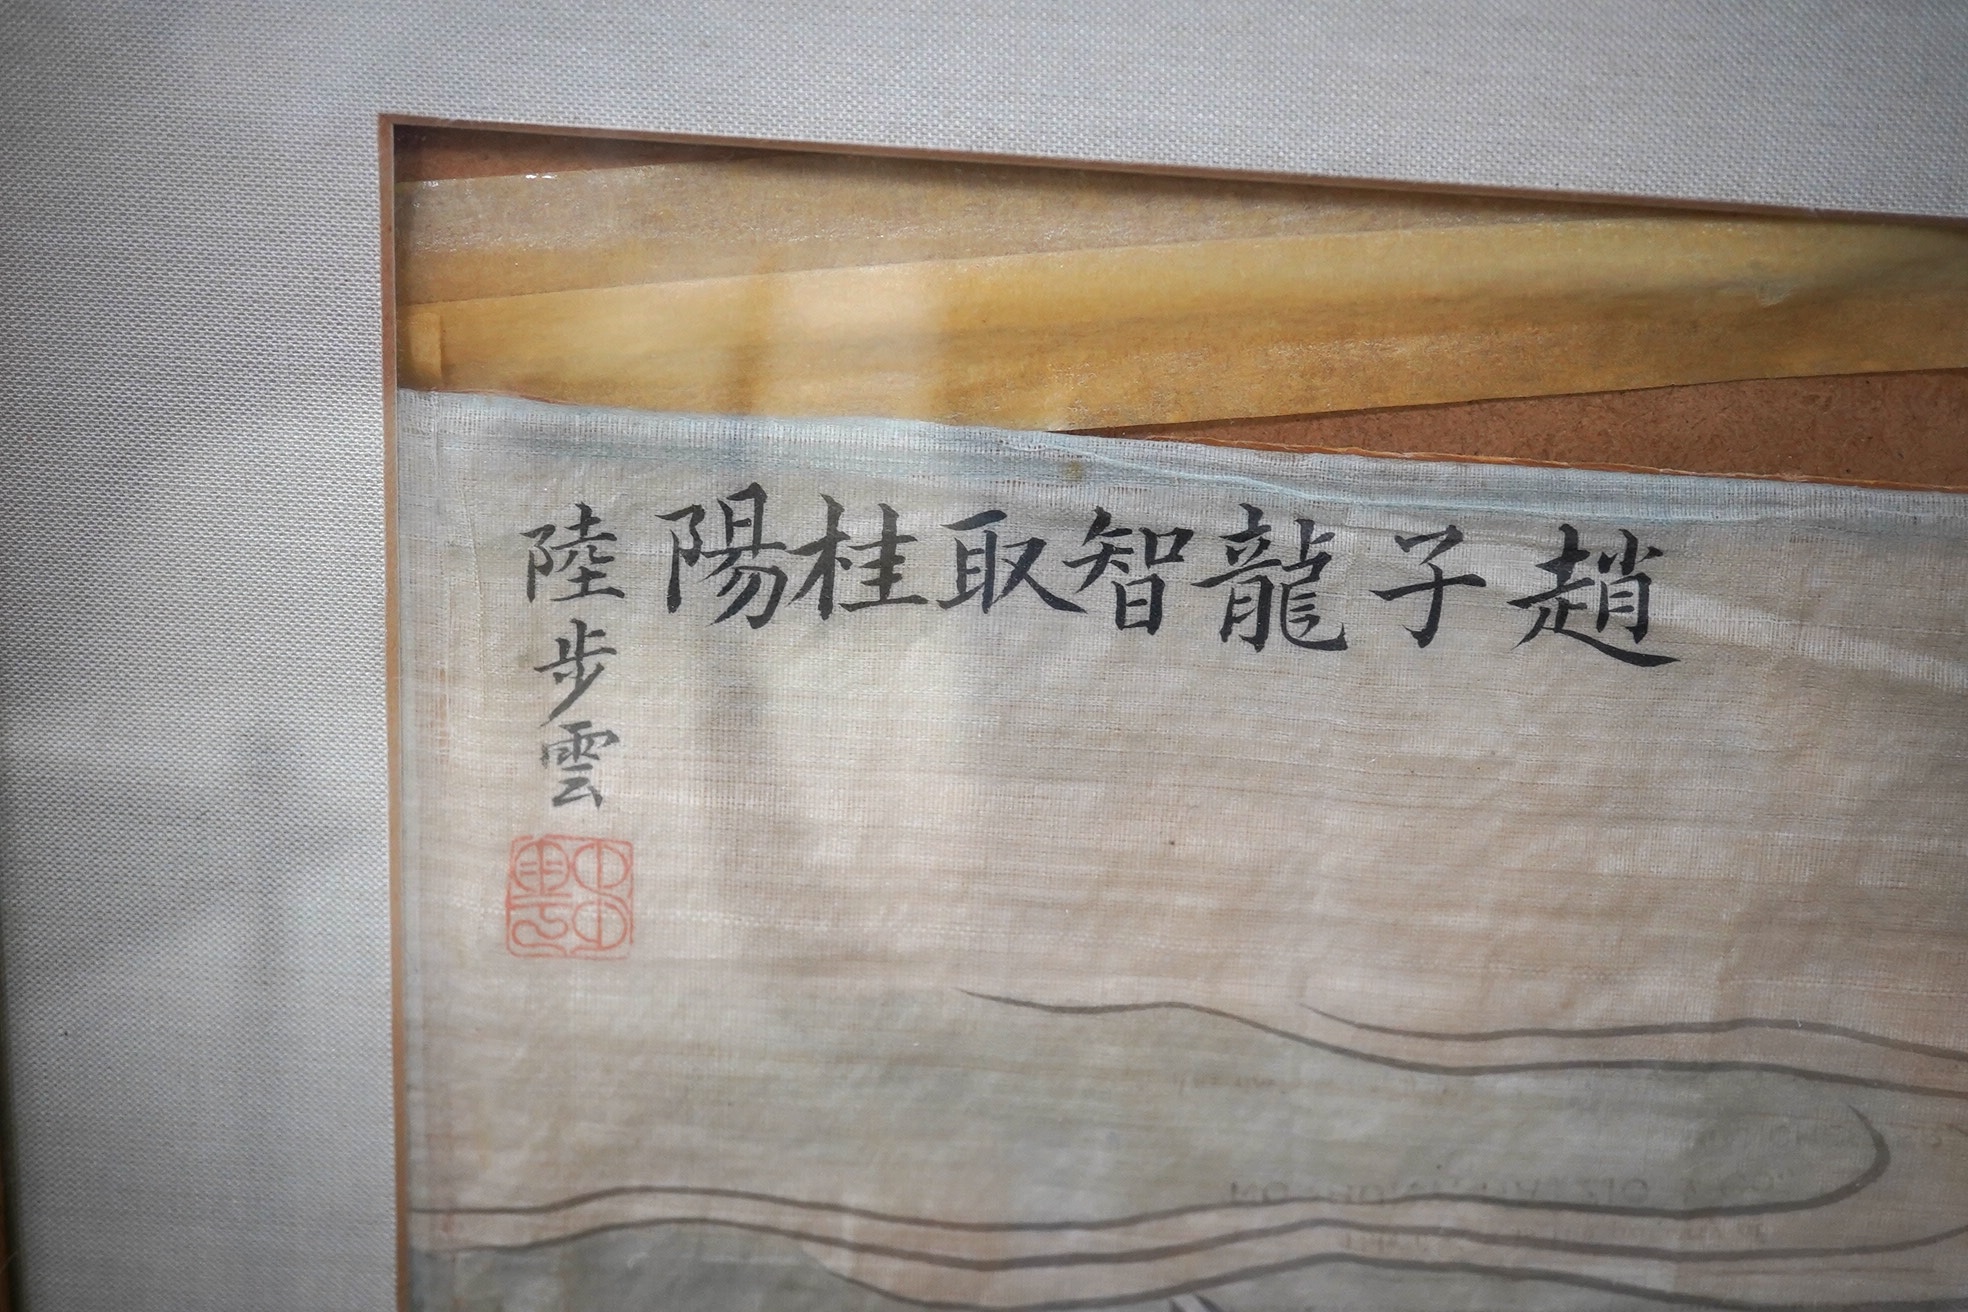 趙子龍智取桂陽
陸步雲